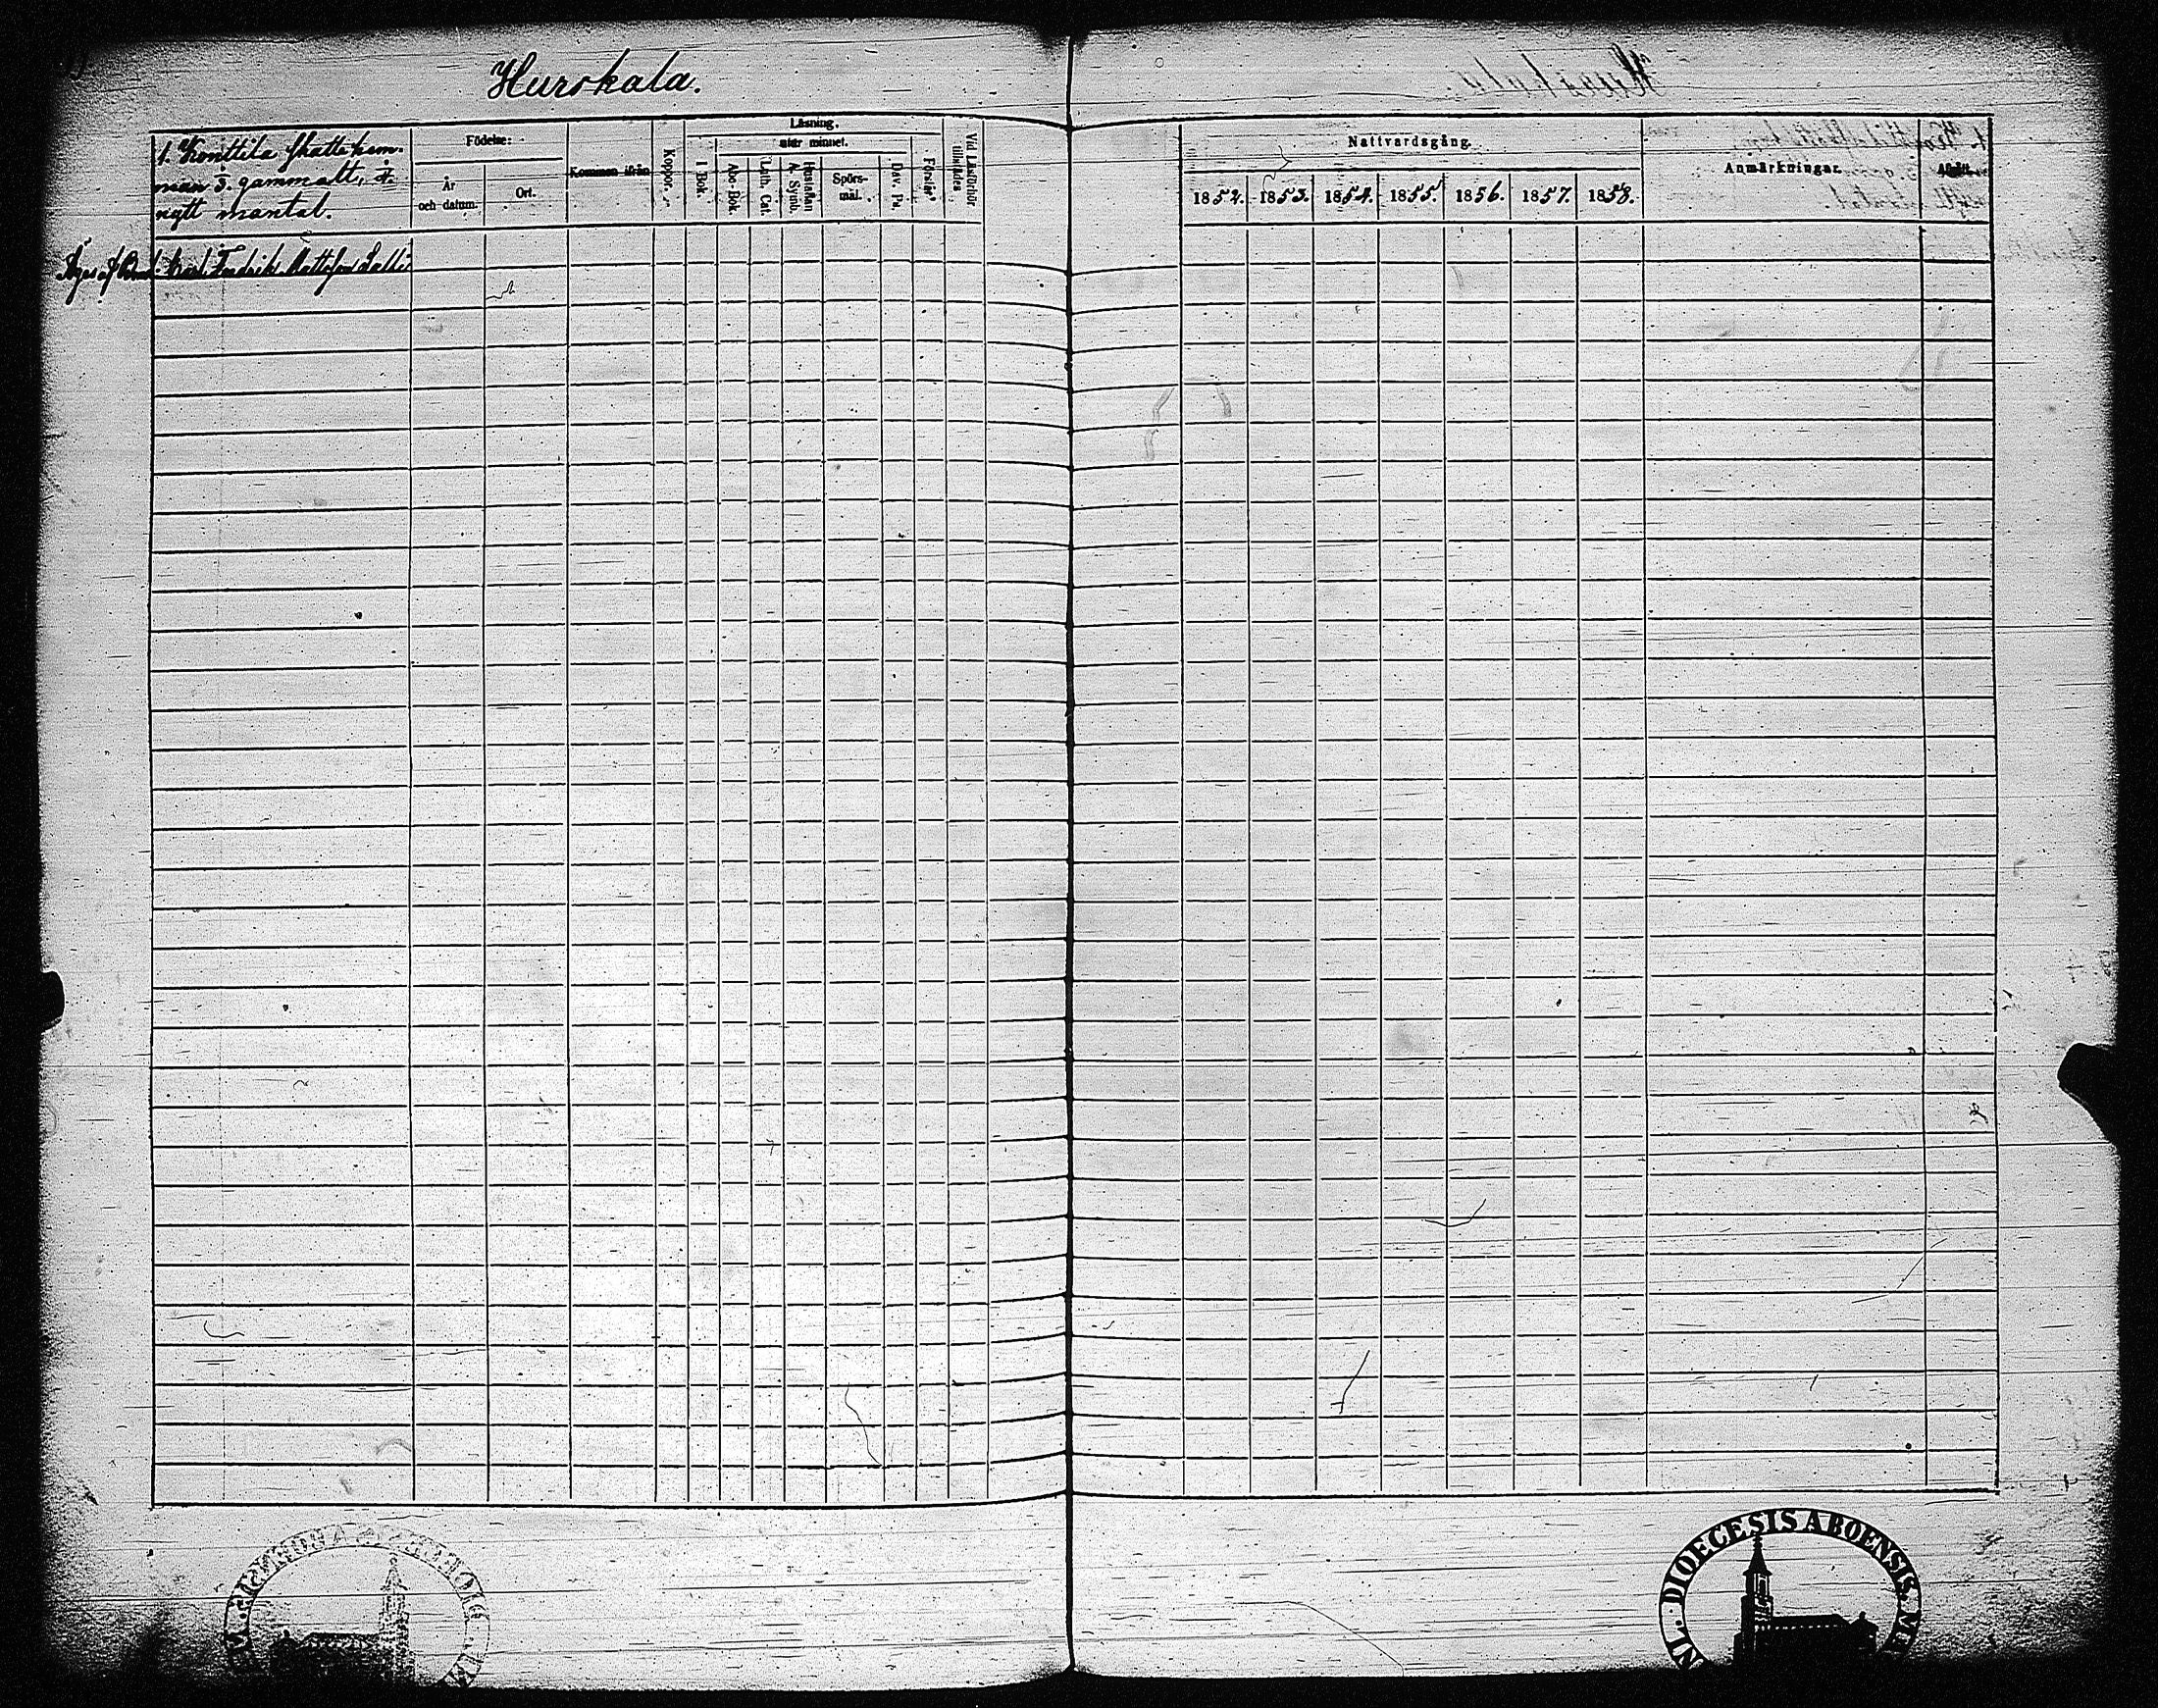 Hurskala.
1. Konttila Skattehem-
man gammalt,
nytt mantal.
Födelse:
År
och datum.
Ort.
Kommen ifrån
Koppor.
Läsning.
I Bok.
utur minnet.
Abc-Bok.
Luth. Cat.
Hustaflan
A. Symb.
Spörs-
mål.
Dav. Ps.
Förstår
Vid Läsförhör
tillstädes
Äges af Bond. Karl Fredrik Mattsson Lalli
Nattvardsgång.
1852.
1853.
1854.
1855.
1856.
1857.
1858.
Anmärkningar.
Afgått.
DIOECESIS ABOENSIS.